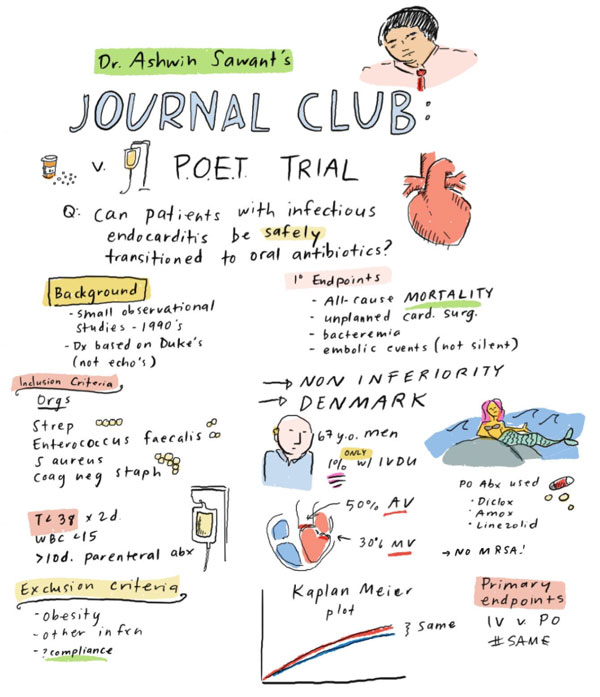 Dr. Ashwin Sawant's
JOURNAL CLUB:
v. P.O.E.T. TRIAL
Q: Can patients with infectious
endocarditis be safely
transitioned to oral antibiotics?
Background
- small observational
studies - 1990's
- Dx based on Duke's
(not echo's)
1° Endpoints
- All-cause MORTALITY
- unplanned card. surg.
- bacteremia
- embolic events (not silent)
→ NON INFERIORITY
→ DENMARK
Inclusion Criteria
Orgs
Strep
Enterococcus faecalis
S aureus
Coag neg staph
T < 38 x 2d.
WBC <15
>10d. parenteral abx
67 y.o. men
ONLY
1% w/ IVDU
50% AV
30% MV
PO Abx used
· Diclox
· Amox
· Linezolid
→ NO MRSA!
Exclusion Criteria
- Obesity
- other infxn
- ?compliance
Kaplan Meier
plot
} same
Primary
endpoints
IV v. PO
#SAME